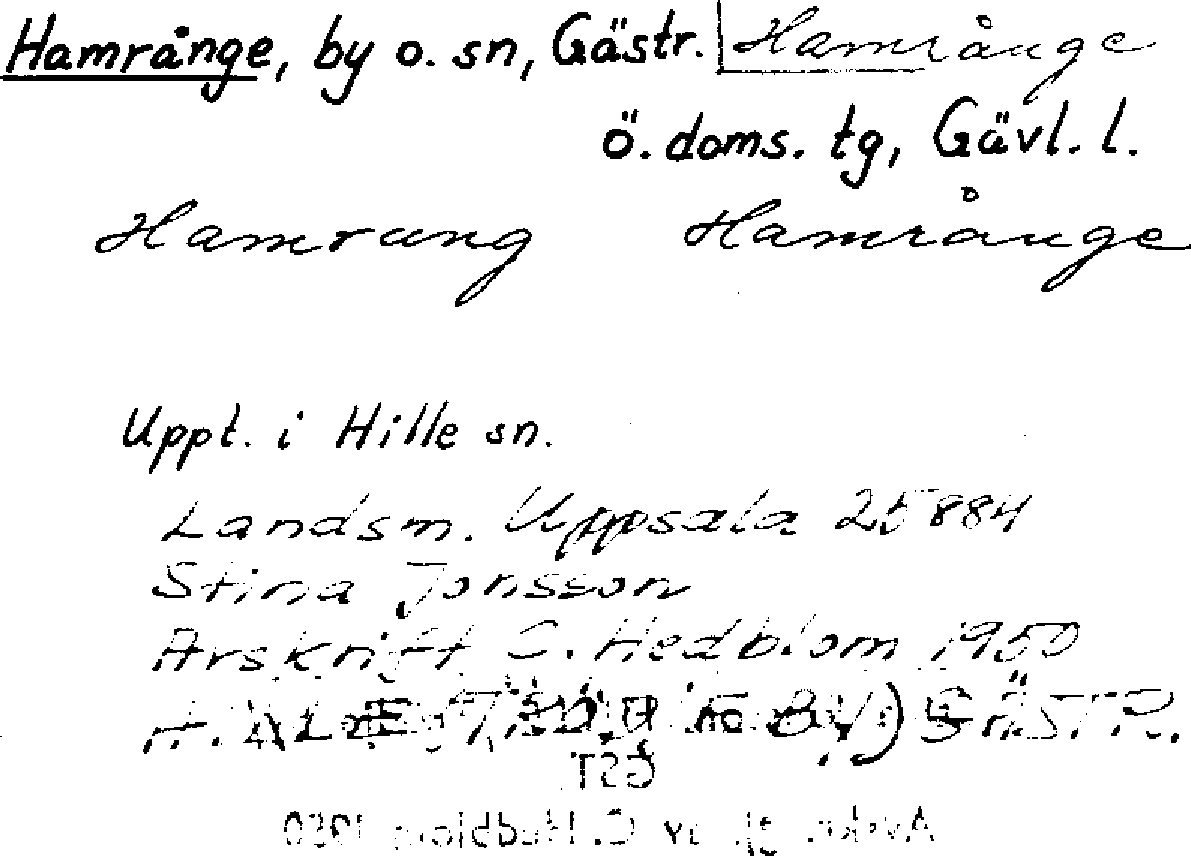 Hamrånge, by o. sn, Gästr. Hamrånge
ö. doms. tg, Gävl. l.
Hamrung Hamrånge
Uppt. i Hille sn.
Landsm. Uppsala 25884
Stina Jonsson
Arskrift C. Hedblom 1950
GÄSTR.
GST
Avskr. av C. Hedblom 1950